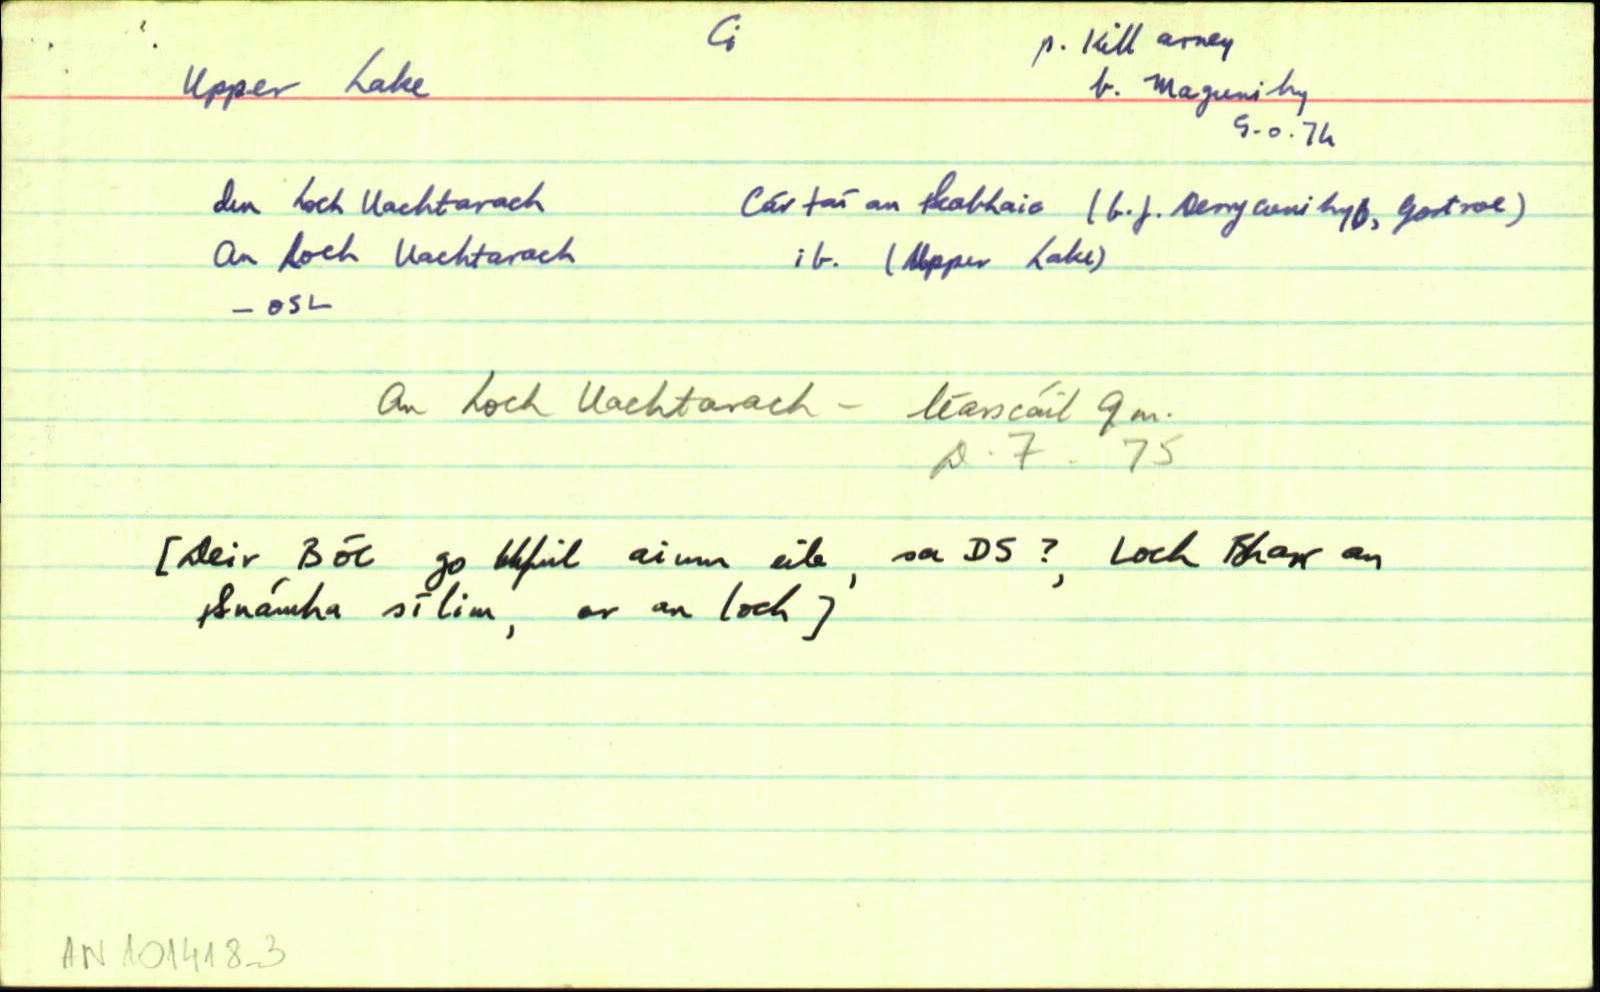 Ci
p. Killarney
Upper Lake
b. Magunihy
9.0.74
den Loch Uachtarach Cártaí an tSeabhaic (b.f. Derrycunihy, Gortroe)
An Loch Uachtarach ib. (Upper Lake)
- OSL
An Loch Uachtarach - léarscáil
D. 7. 75
[Deir BÓC go bhfuil ainm eile, sa DS?, Loch Bharr an
Snámha sílim, ar an loch]
AN 101418_3